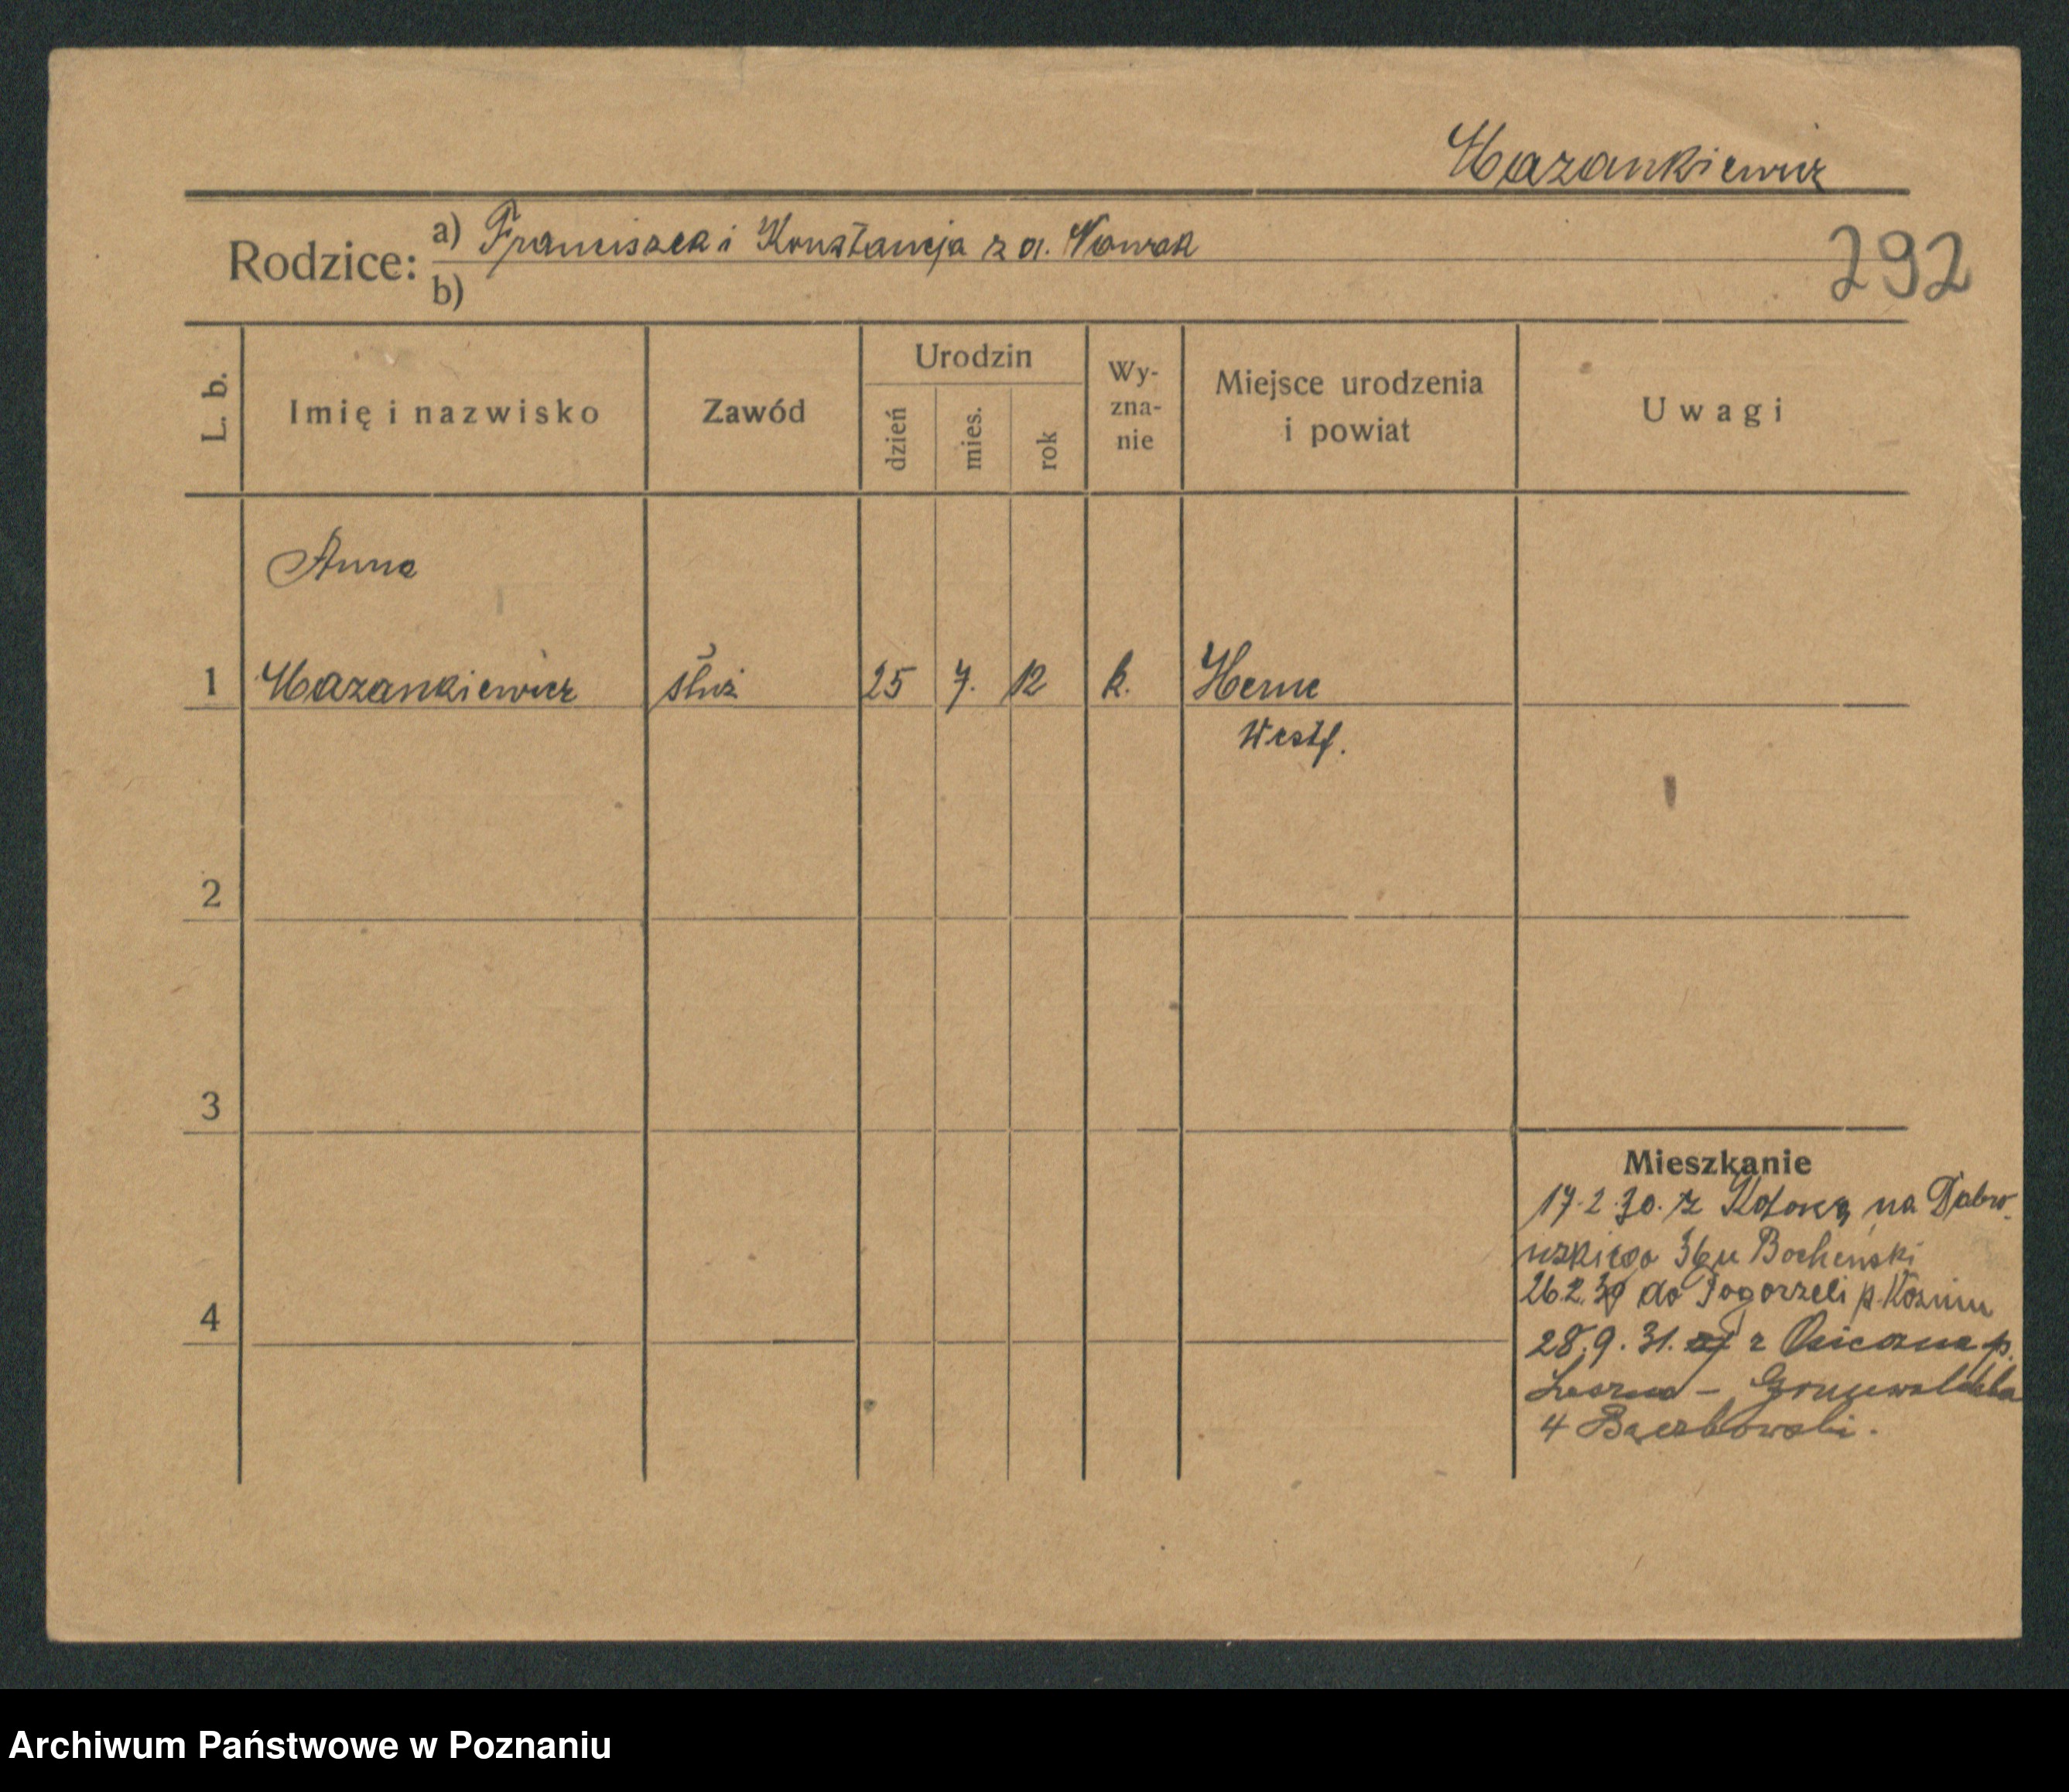 Mazankiewicz
Rodzice: a) Franciszek i Konstancja z d. Nowak
b)
292
L. b. Imię i nazwisko Zawód Urodzin dzień mies. rok Wy-zna-nie Miejsce urodzenia i powiat Uwagi
Anna
1 Mazankiewicz służ. 25 7. 12 k. Herne
Westf.
2
3
Mieszkanie
17.2.30. z na Dąbro-
wskiego 36 u Bocheński
26.2.30 do Pogorzeli p. Koźmin
4
28.9.31. z Osieczna p.
Leszno - Grunwaldzka
4 Bączkowski.
Archiwum Państwowe w Poznaniu